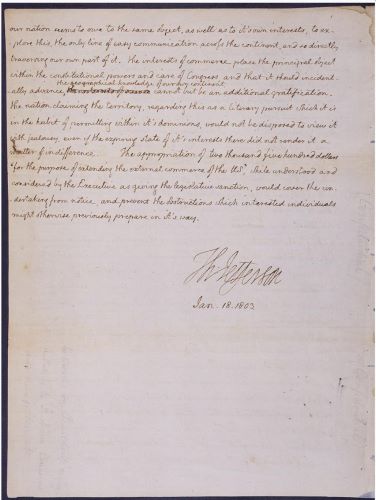 our nation seems to owe to the same object, as well as to it's own interests, to ex-
-plore this, the only line of easy communication across the continent, and so directly
traversing our own part of it. the interests of commerce place the principal object
within the constitutional powers and care of Congress, and that it should incident-
the geographical knowledge of our own continent
-ally advance, cannot but be an additional gratification.
the nation claiming the territory, regarding this as a literary pursuit which it is
in the habit of permitting within it's dominions, would not be disposed to view it
with jealousy, even if the expiring state of it's interests there did not render it a
matter of indifference. The appropriation of two thousand five hundred dollars
"for the purpose of extending the external commerce of the US", while understood and
considered by the Executive as giving the legislative sanction, would cover the un-
-dertaking from notice, and prevent the obstructions which interested individuals
might otherwise previously prepare in it's way.
Th Jefferson
Jan. 18. 1803